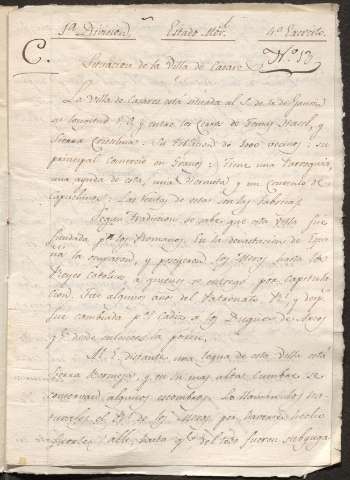 1ª. Division. Estado Mor. 4º. Exercito.
C. Nº. 13
Situacion de la Villa de Casares
La Villa de Casares está situada al S. de la de Gaucin
su longitud y entre los
Sierra Crestelina. Su Poblacion de 1000 vecinos: su
principal comercio en Granos: tiene una Parroquia,
una ayuda de esta, una Hermita y un Convento de
Capuchinos. Las rentas de estas son las fabricas.
Segun tradicion se sabe que esta Villa fue
fundada pr. los Romanos. En la devastacion de Espa
ña la ocuparon, y poseyeron los Moros hasta los
Reyes Catolicos, á quienes se entregó por capitula
cion. Fue algunos años del Patronato Rl. y desp.
fue cambiada pr. Cadiz á los Duques de Arcos
qe. desde entonces la poseen.
Al E. distante una legua de esta Villa está
Sierra Bermeja, y en su mas alta cumbre se
conservan algunos escombros. La llaman los na
turales el Rl. de los Moros por haverse hecho
fuertes alli, hasta qe. del todo fueron subyuga